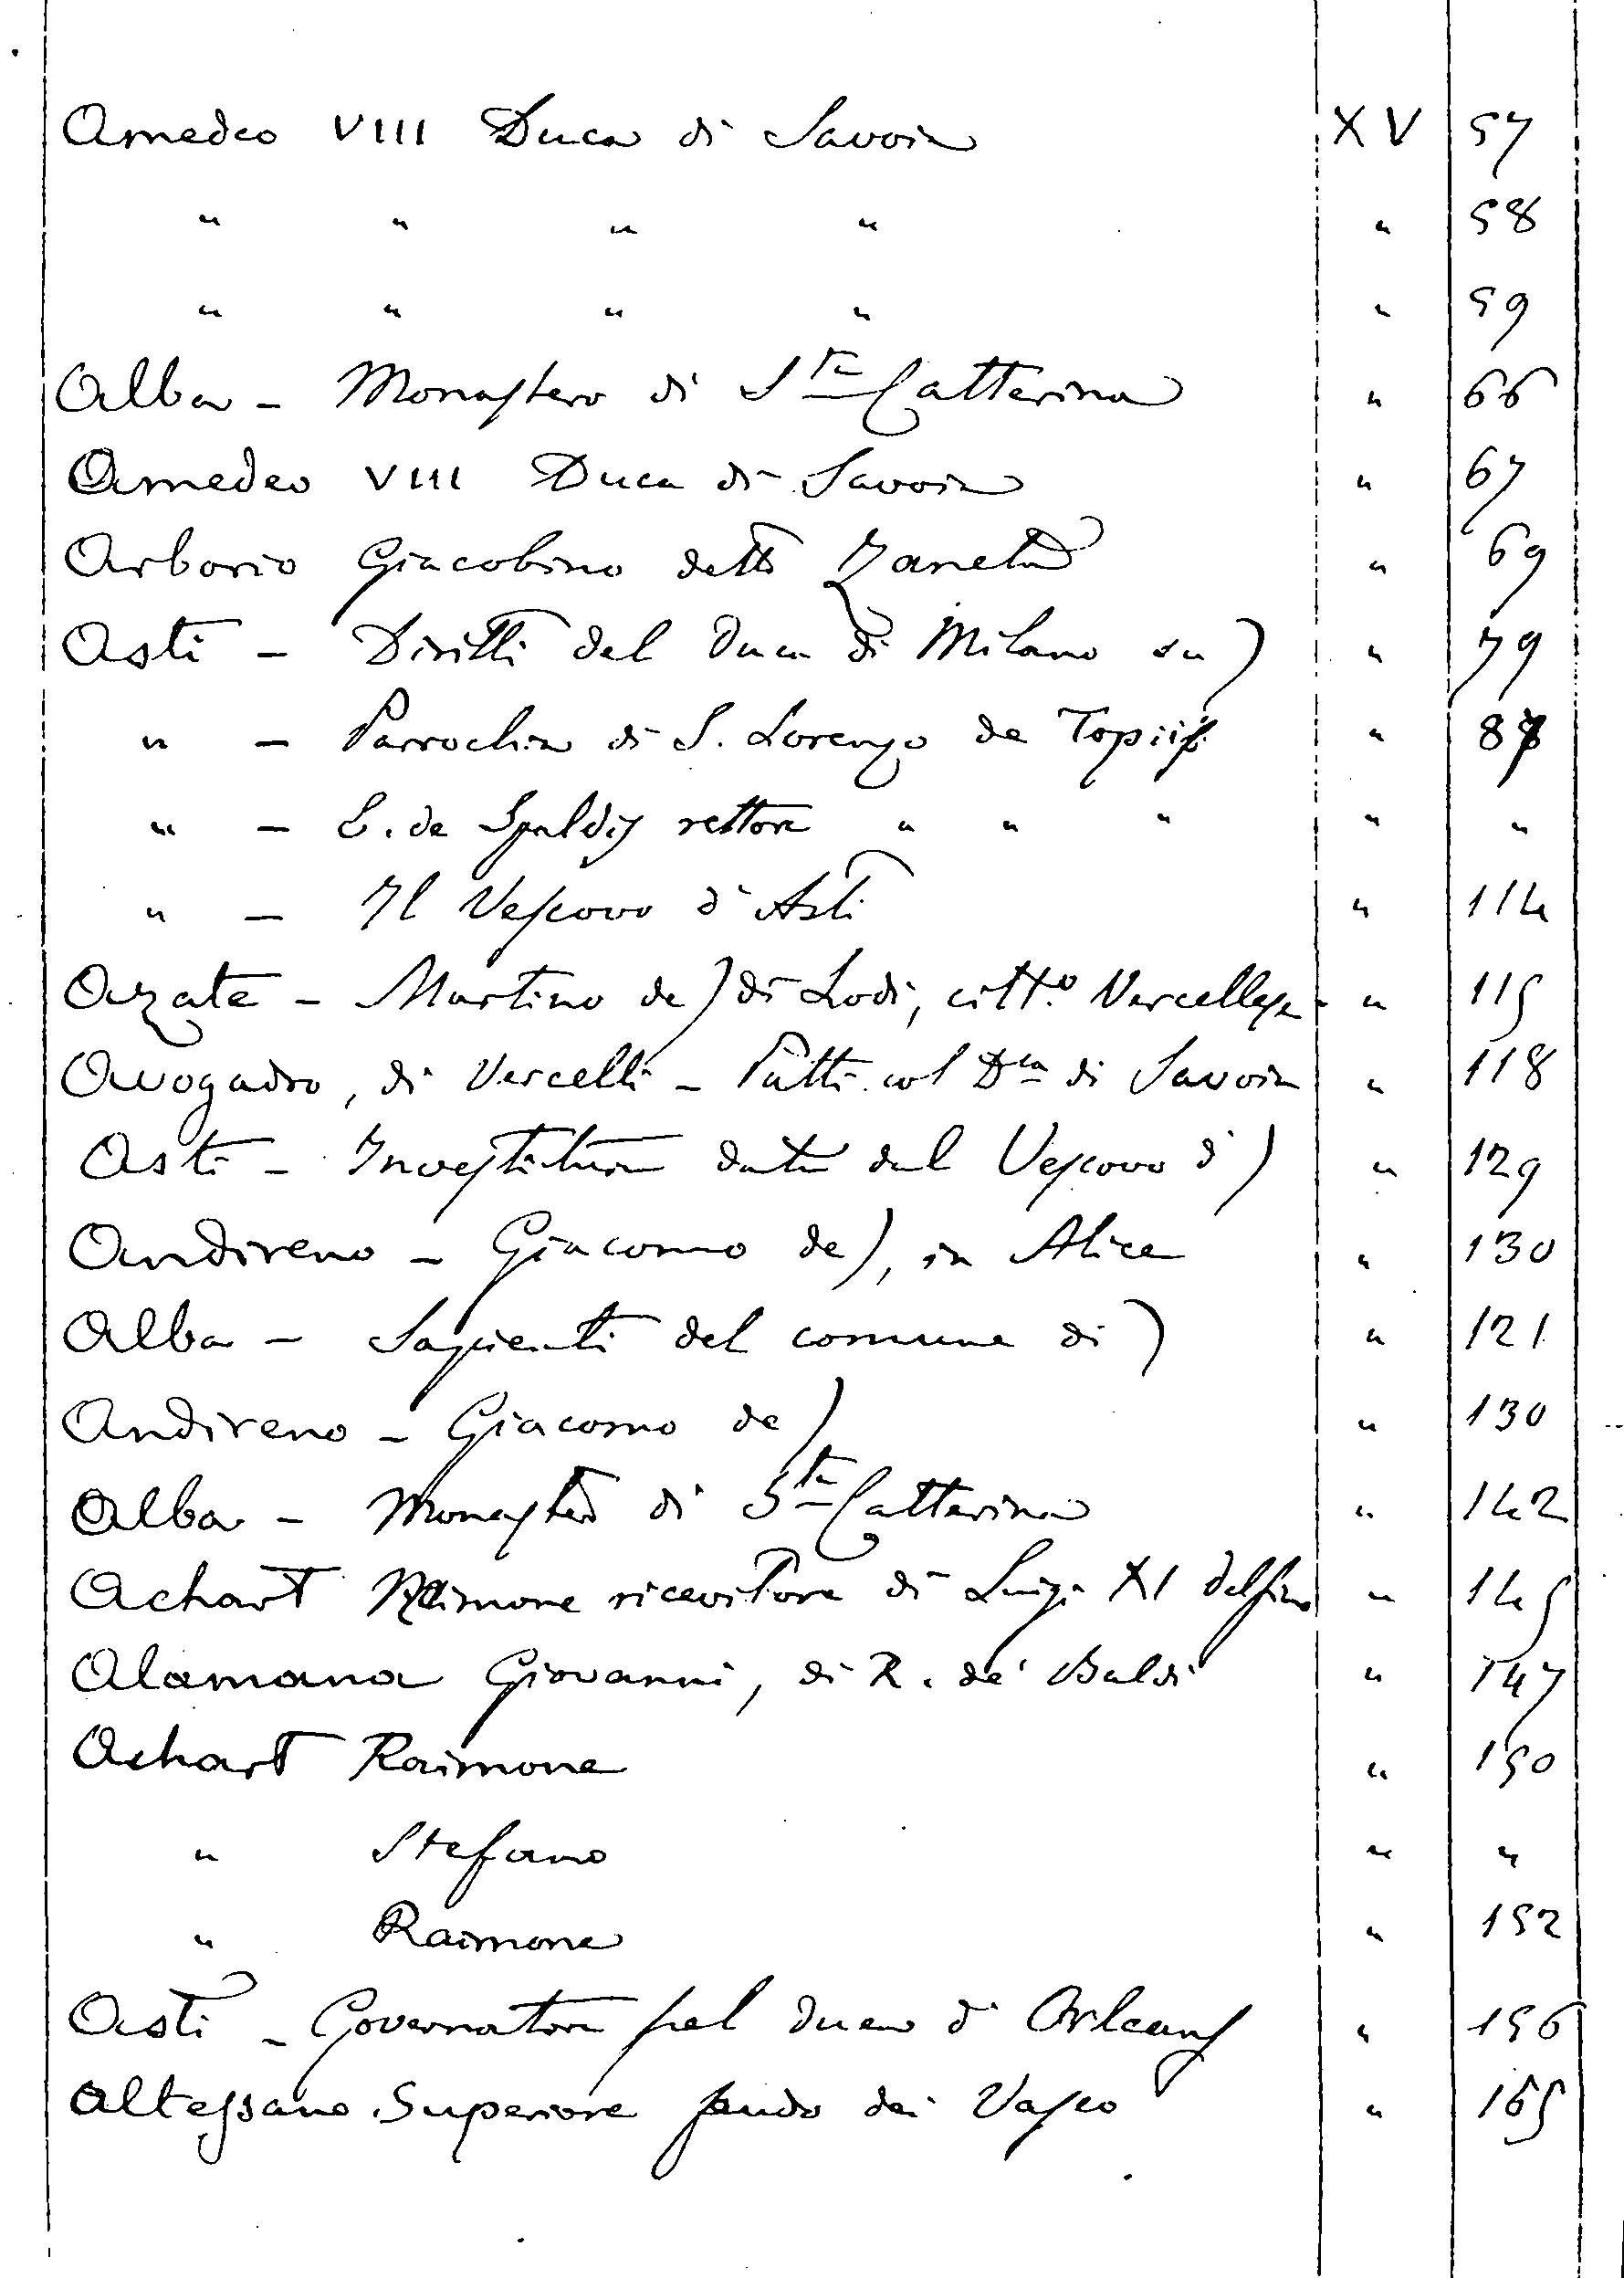 Amedeo VIII Duca di Savoia XV 57
" " " " " 58
" " " " " 59
Alba - Monastero di Sta Catterina " 66
Amedeo VIII Duca di Savoia " 67
Arborio Giacobino detto Zaneta " 69
Asti - Diritti del Duca di Milano su) " 79
" - Parrochia di S. Lorenzo de Topiis " 87
" - E. de Spaldis rettore " " " " "
" - Il Vescovo d'Asti " 114
Azate - Martino de) di Lodi, citto. Vercellese - " 115
Avogadro, di Vercelli - Patti col Dca di Savoia " 118
Asti - Investitura data dal Vescovo d') " 129
Andireno - Giacomo de), in Alice " 130
Alba - Sapienti del comune di) " 121
Andireno - Giacomo de) " 130
Alba - Monastero di Sta Catterina " 142
Achart Raimone ricevitore di Luigi XI delfino " 145
Alamana Giovanni, di R. de' Baldi " 147
Achart Raimone " 150
" Stefano " "
" Raimone " 152
Asti - Governatore pel duca d'Orleans " 156
Altessano Superiore feudo dei Vasco " 165